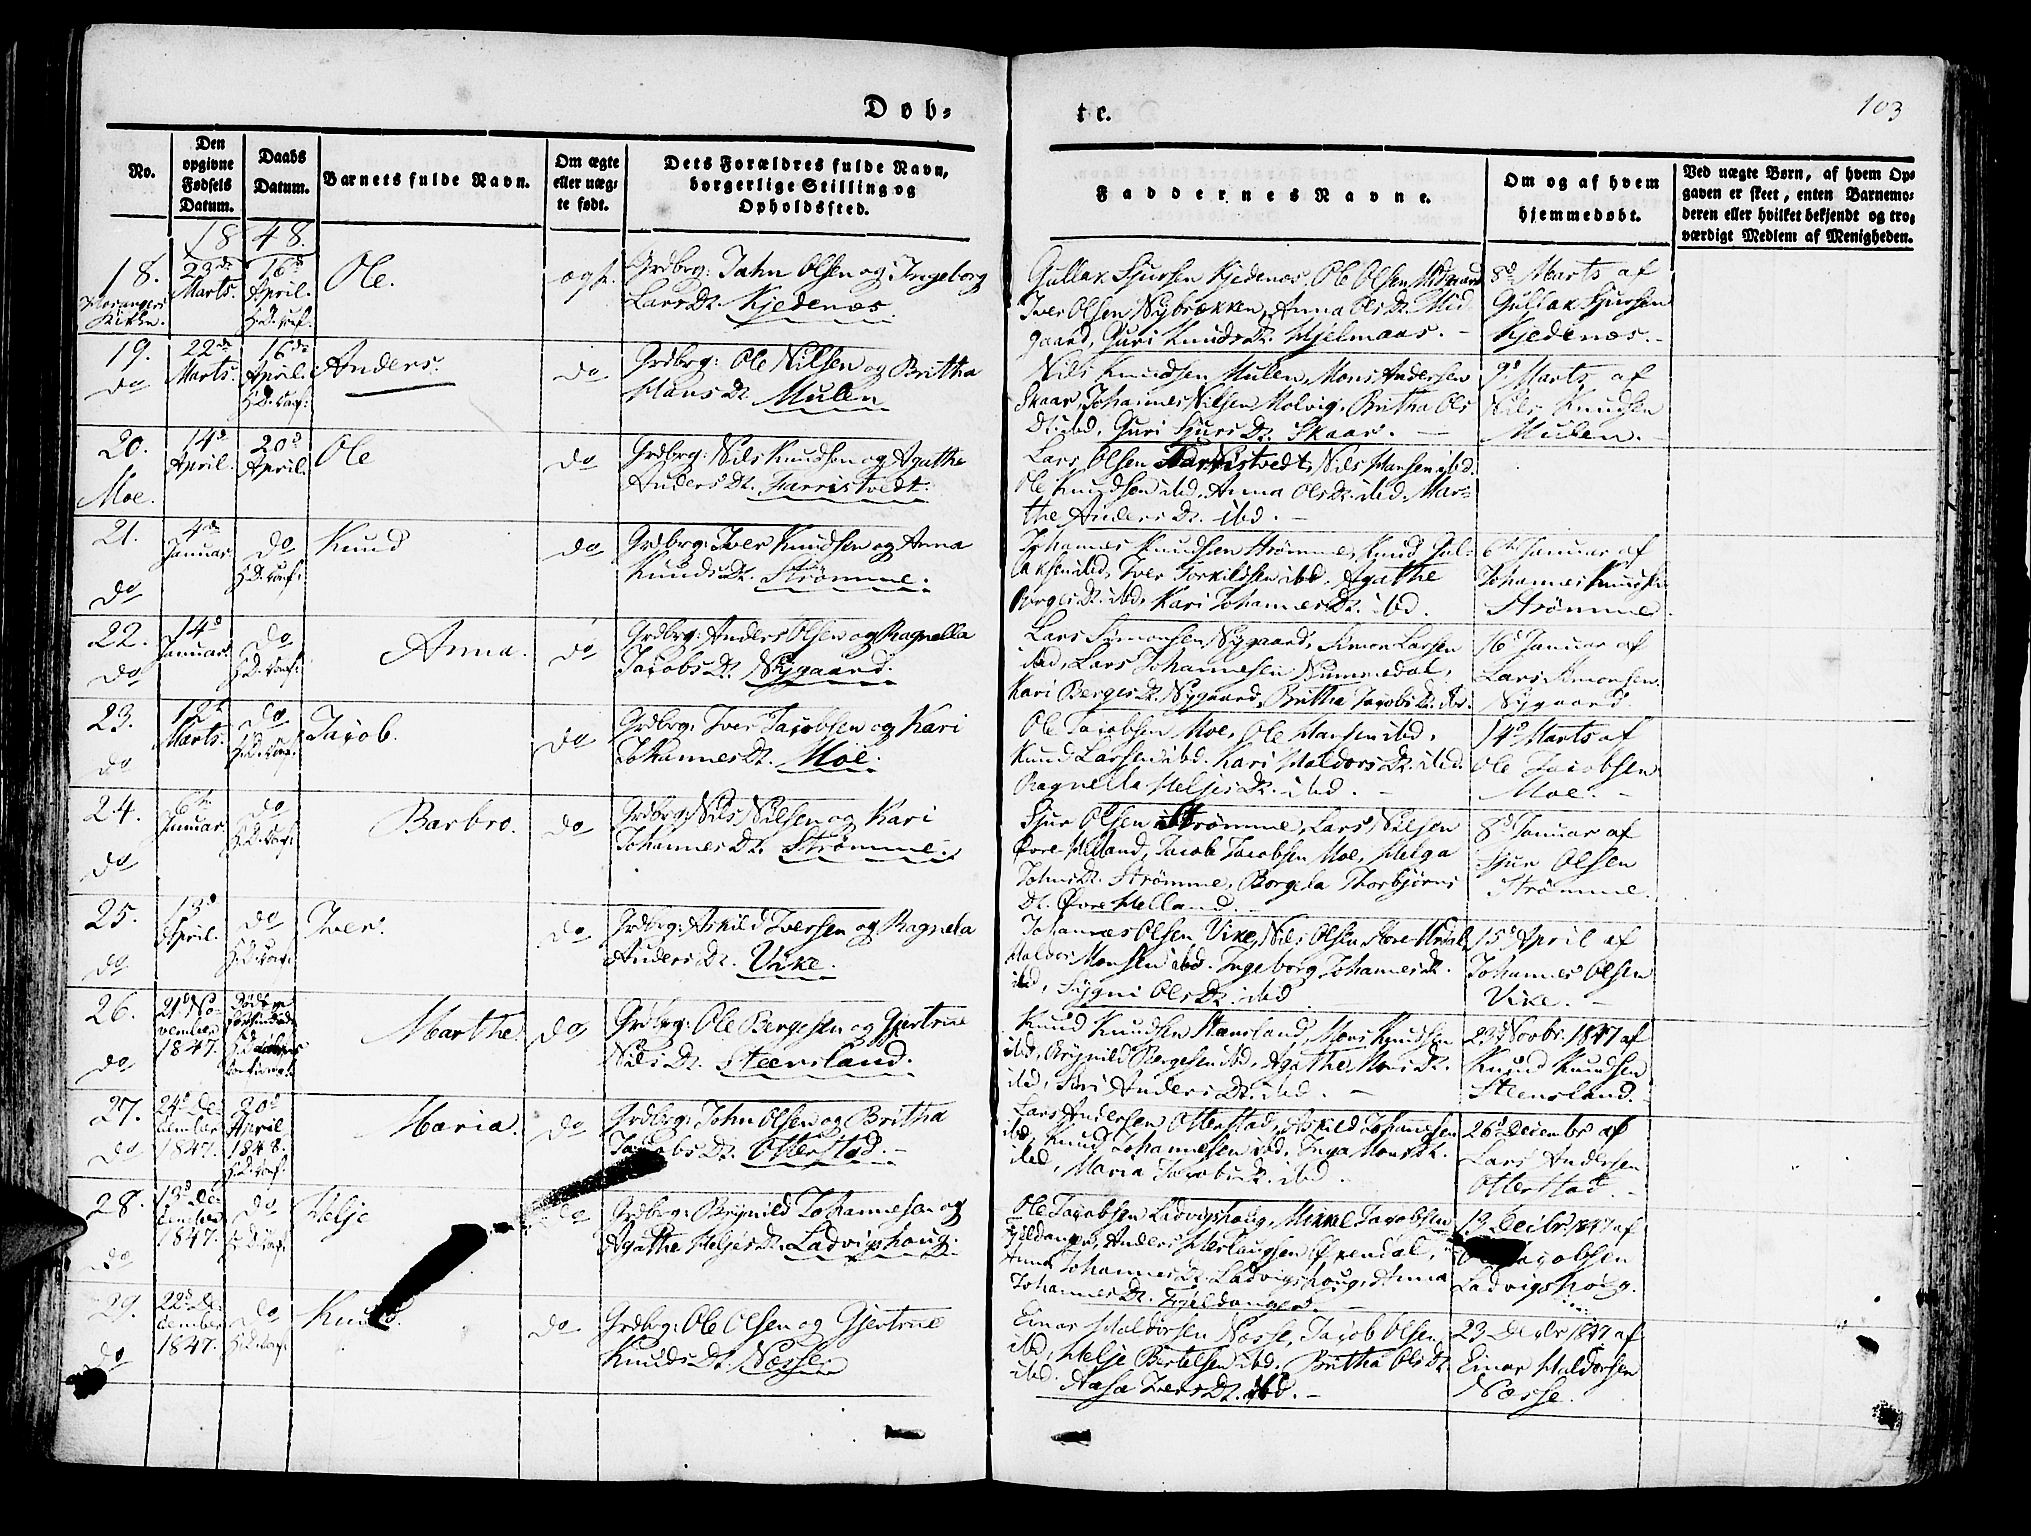 Døb-
te.
103
No.
Den opgivne Fødsels Datum.
Daabs Datum.
Barnets fulde Navn.
Om ægte eller uægte født.
Dets Forældres fulde Navn, borgerlige Stilling og Opholdssted.
Faddernes Navne.
Om og af hvem hjemmedøbt.
Ved uægte Børn, af hvem Opgaven er skeet, enten Barnemoderen eller hvilket bekjendt og troværdigt Medlem af Menigheden.
1848.
18.
Kirke.
23de Marts.
16d April.
Ole.
ægt.
Grdbrg: John Olsen og Ingeborg
Lars Dt. Kjedenæs.
Gullak Sjursen Kjedenæs, Ole Olsen Midgaard
Iver Olsen Nybrekken, Anna Ols Dt. Mid
gaard, Guri Knuds Dt. Hjelmaas. -
8d Marts af
Gullak Sjursen
Kjedenæs. -
19.
do
22de Marts.
16de April.
Anders.
do
Grdbrg: Ole Nilsen og Britha
Hans Dt. Mulen
Nils Knudsen Mulen, Mons Andersen
Skaar, Johannes Nilsen Molvig, Britha Ols
Dt. ibd, Guri Sjurs Dt. Skaar. -
9d Marts af
Nils Knudsen
Mulen. -
20.
Moe.
14d April.
20d April.
Ole
do
Grdbrg: Nils Knudsen og Agathe
Anders Dt. Farristvedt.
Lars Olsen Farristvedt, Nils Hansen ibd.
Ole Knudsen ibd, Anna Ols Dt. ibd, Mar-
the Anders Dt. ibd. -
21.
do
4de Januar.
do
Knud
do
Grdbrg: Iver Knudsen og Anna
Knuds Dt. Strømme.
Johannes Knudsen Strømme, Knud Gul-
aksen ibd, Iver Torkildsen ibd. Agathe
Borges Dt. ibd, Kari Johannes Dt. ibd.
6te Januar af
Johannes Knudsen
Strømme.
22.
do
14d Januar.
do
Anna.
do
Grdbrg: Anders Olsen og Ragnella
Jacobs Dt. Nygaard.
Lars Simonsen Nygaard, Simon Larsen
ibd, Lars Johannesen Nummedal,
Kari Berges Dt. Nygaard, Britha Jacobs Dt. ibd.
16d Januar af
Lars Simonsen
Nygaard
23.
do
12te Marts.
do
Jacob.
do
Grdbrg: Iver Jacobsen og Kari
Johannes Dt. Moe.
Ole Jacobsen Moe, Ole Hansen ibd,
Knud Larsen ibd. Kari Haldors Dt. ibd.
Ragnella Heljes Dt. ibd. -
14d Marts af
Ole Jacobsen
Moe. -
24.
do
6te Januar.
do
Barbro.
do
Grdbrg: Nils Nilsen og Kari
Johannes Dt. Strømme.
Sjur Olsen Strømme, Lars Nilsen
Øvre Helland, Jacob Jacobsen Moe, Helga
Johns Dt. Strømme, Borgela Thorbjørns
Dt. Øvre Helland.
8d Januar af
Sjur Olsen
Strømme.
25.
do
13d April.
do
Iver.
do
Grdbrg: Askild Iversen og Ragnela
Anders Dt. Vike.
Johannes Olsen Vike, Nils Olsen Store Urdal,
Haldor Monsen ibd. Ingeborg Johannes Dt.
ibd, Sygni Ols Dt. ibd
15d April af
Johannes Olsen
Vike. -
26.
do
21d No-
vember
1847.
Marthe
do
Grdbrg: Ole Bergesen og Gjertrue
Nils Dt. Steensland.
Knud Knudsen Steensland, Mons Knudsen
ibd, Brynild Bergesen ibd, Agathe Mons Dt.
ibd, Siri Anders Dt. ibd. -
23d Novbr. 1847 af
Knud Knudsen
Steensland. -
27.
do
24d De-
cember
1847.
20d
April
1848.
Maria.
do
Grdbrg: John Olsen og Britha
Jacobs Dt. Otterstad. -
Lars Andersen Otterstad, Askild Johannesen
ibd, Knud Johannesen ibd, Inga Mons Dt.
ibd, Maria Jacobs Dt. ibd -
26d Decembr af
Lars Andersen
Otterstad. -
28.
do
13d De-
cember
1847.
do
Helje
do
Grdbrg: Brynild Johannesen og
Agathe Heljes Dt. Ladvigshoug.
Ole Jacobsen Ladvigshoug, Mikkel Jacobsen
Fjeldanger, Anders Herlaugsen Øxendal,
Anna Johannes Dt. Ladvigshoug, Anna
Johannes Dt. Fjeldanger. -
Decbr 1847 af
Ole Jacobsen
Ladvigshoug.
29.
do
22d De-
cember
1847.
do
Knud.
do
Grdbrg: Ole Olsen og Gjertrue
Knuds Dt. Næsse
Einar Haldorsen Næsse, Jacob Olsen
ibd, Helje Bertelsen ibd. Britha Ols Dt
ibd. Aasa Ivers Dt. ibd. -
23 Decbr 1847 af
Einar Haldorsen
Næsse.